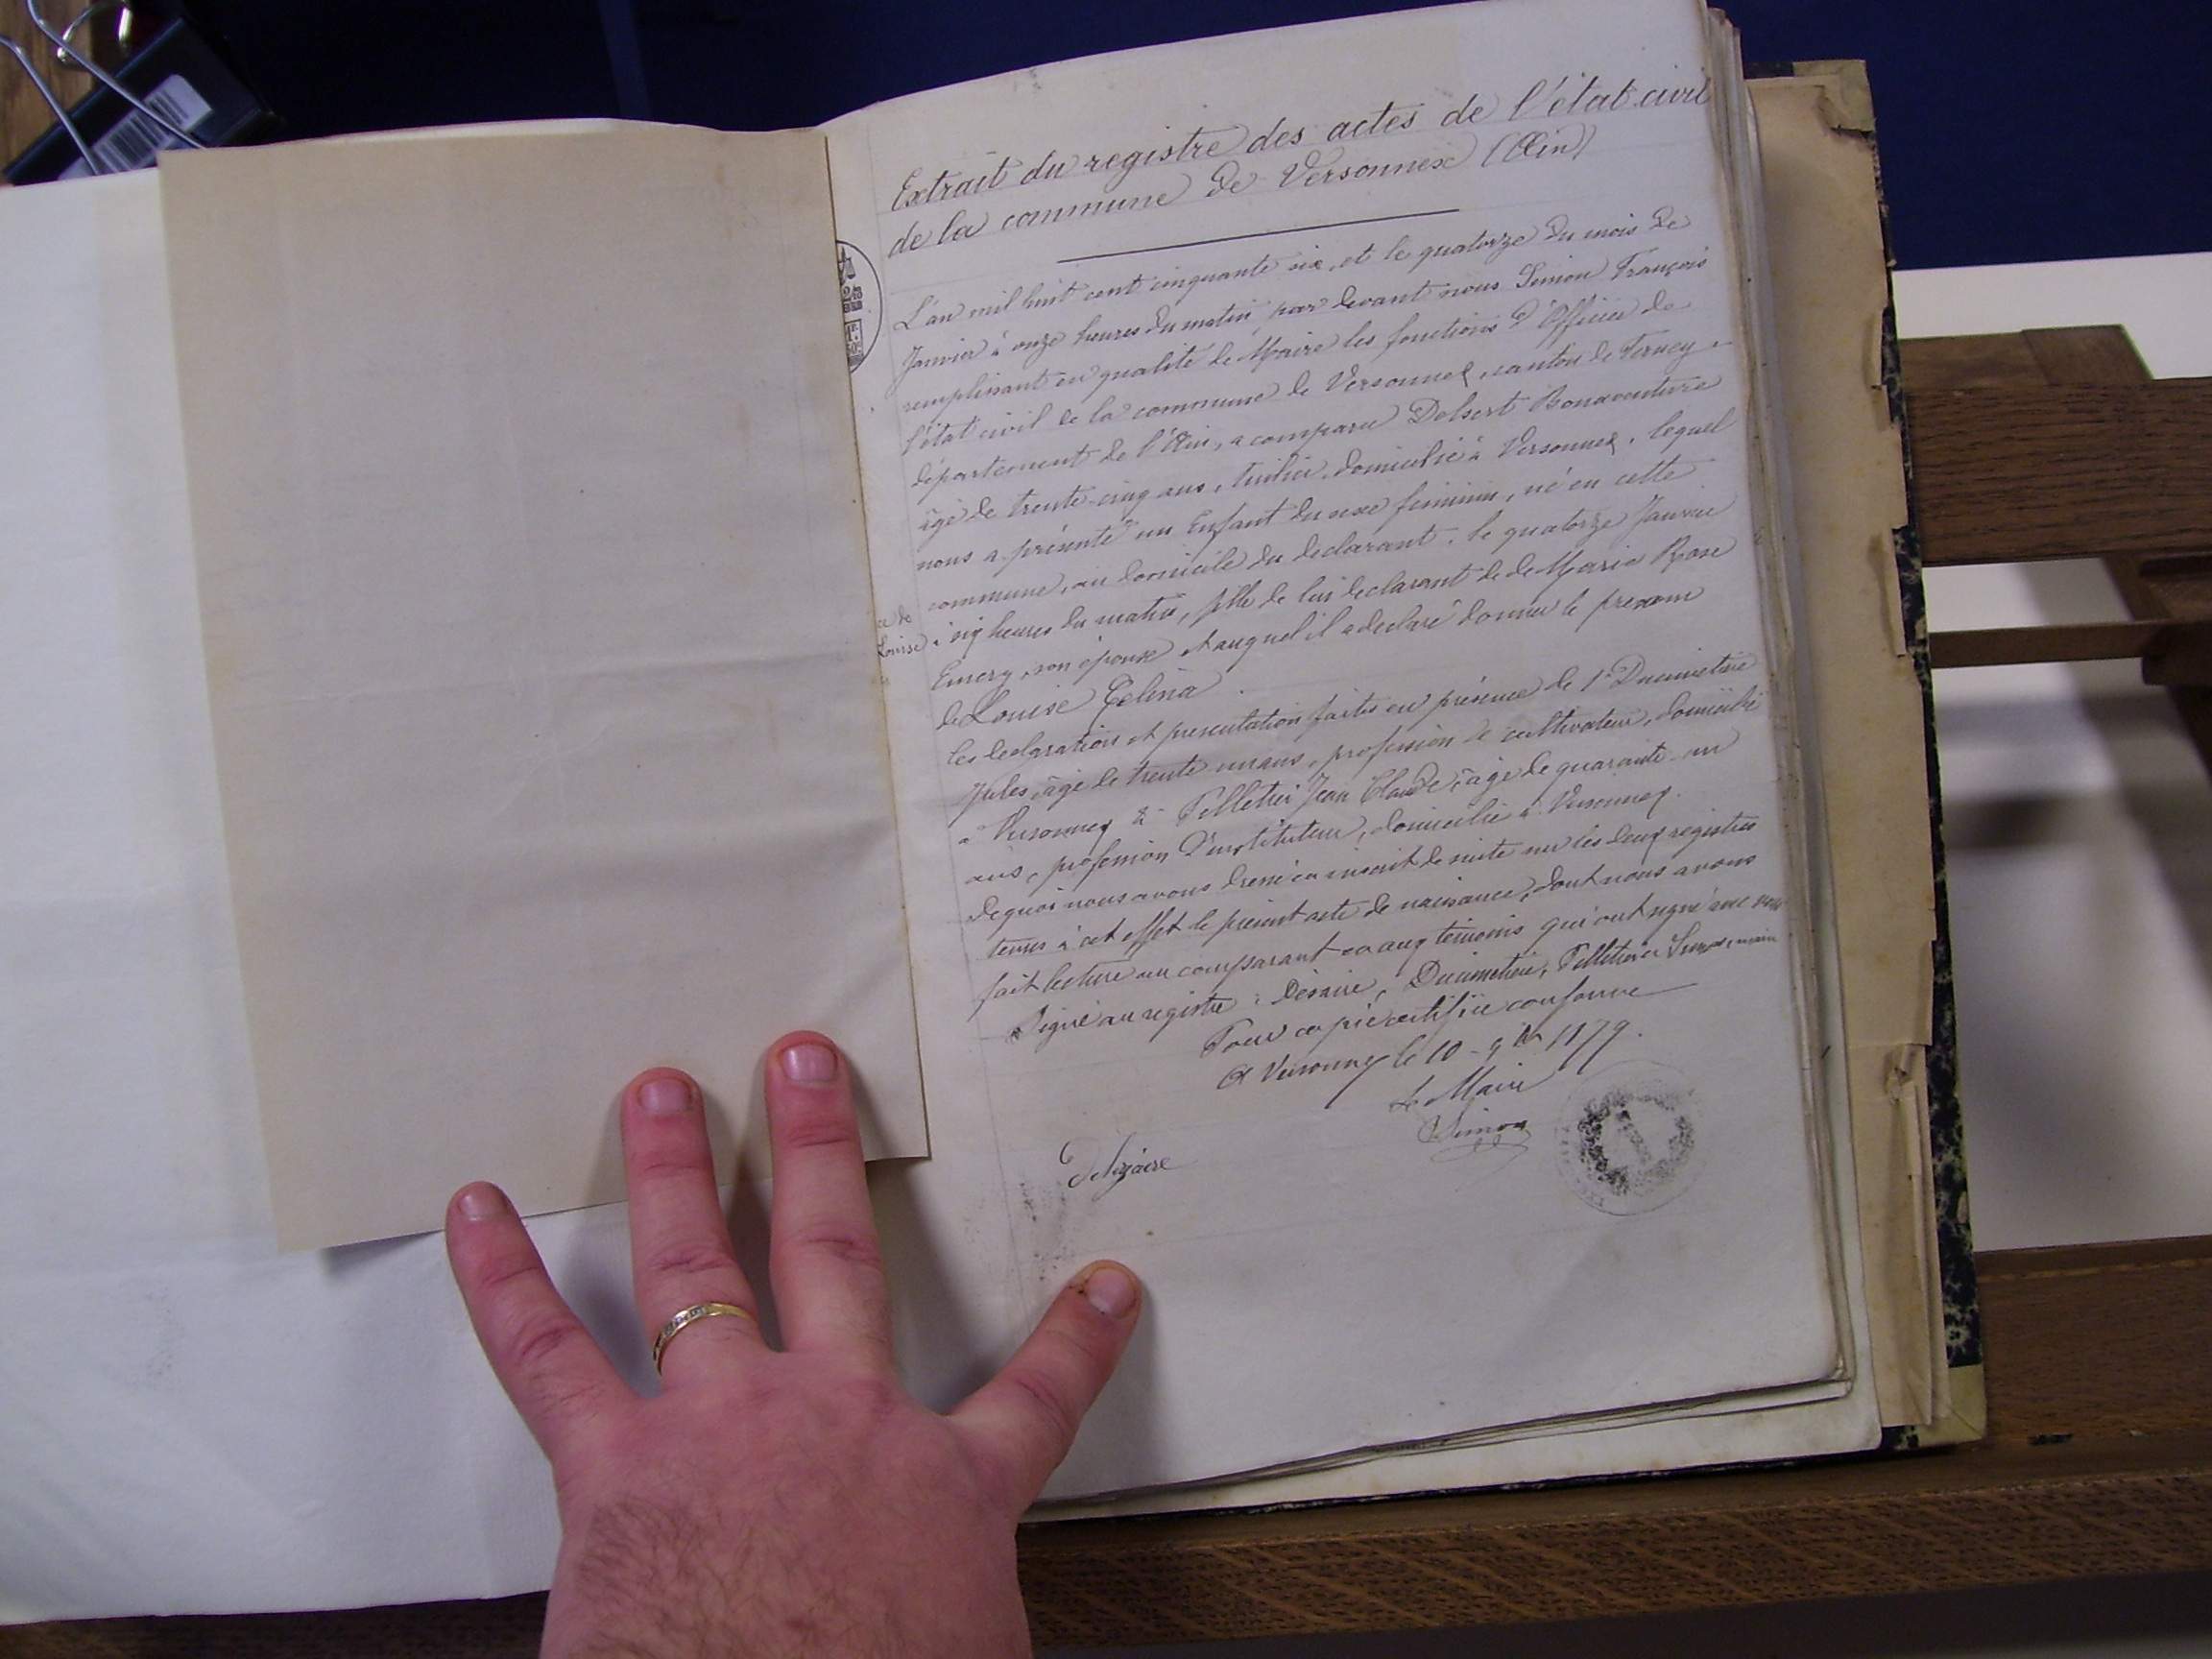 Extrait du registre des actes de l'état civil
de la commune de Versonnex (Ain)
L'an mil huit cent cinquante six, et le quatorze du mois de
Janvier à onze heures du matin par devant nous Simon François
remplissant en qualité de Maire les fonctions d'Officier de
l'état civil de la commune de Versonnex, canton de Ferney
département de l'Ain, a comparu Bonaventure
âgé de trente-cinq ans, tuilier, domicilié à Versonnex, lequel
nous a présenté un Enfant du sexe féminin, né en cette
commune, au domicile du déclarant, le quatorze Janvier
à six heures du matin, fille de lui déclarant & de Marie Rose
Emery, son épouse et auquel il a déclaré donner le prenom
de Louise
Louise
Les declaration et presentation faites en présence de 1° Ducimetière
Jules, âgé de trente un ans, profession de cultivateur, domicilié
à Versonnex 2° Pelletier Jean Claude, âgé de quarante un
ans, profession d'instituteur, domicilié à Versonnex.
De quoi nous avons dressé et inscrit de suite sur les deux registres
tenus à cet effet le présent acte de naissance, dont nous avons
fait lecture au comparant et aux témoins qui ont signé avec nous
Signé au registre : Ducimetière, Pelletier et Simon, maire
Pour copie certifiée conforme
A Versonnex le 10 - 9bre 1879.
Le Maire
Simon